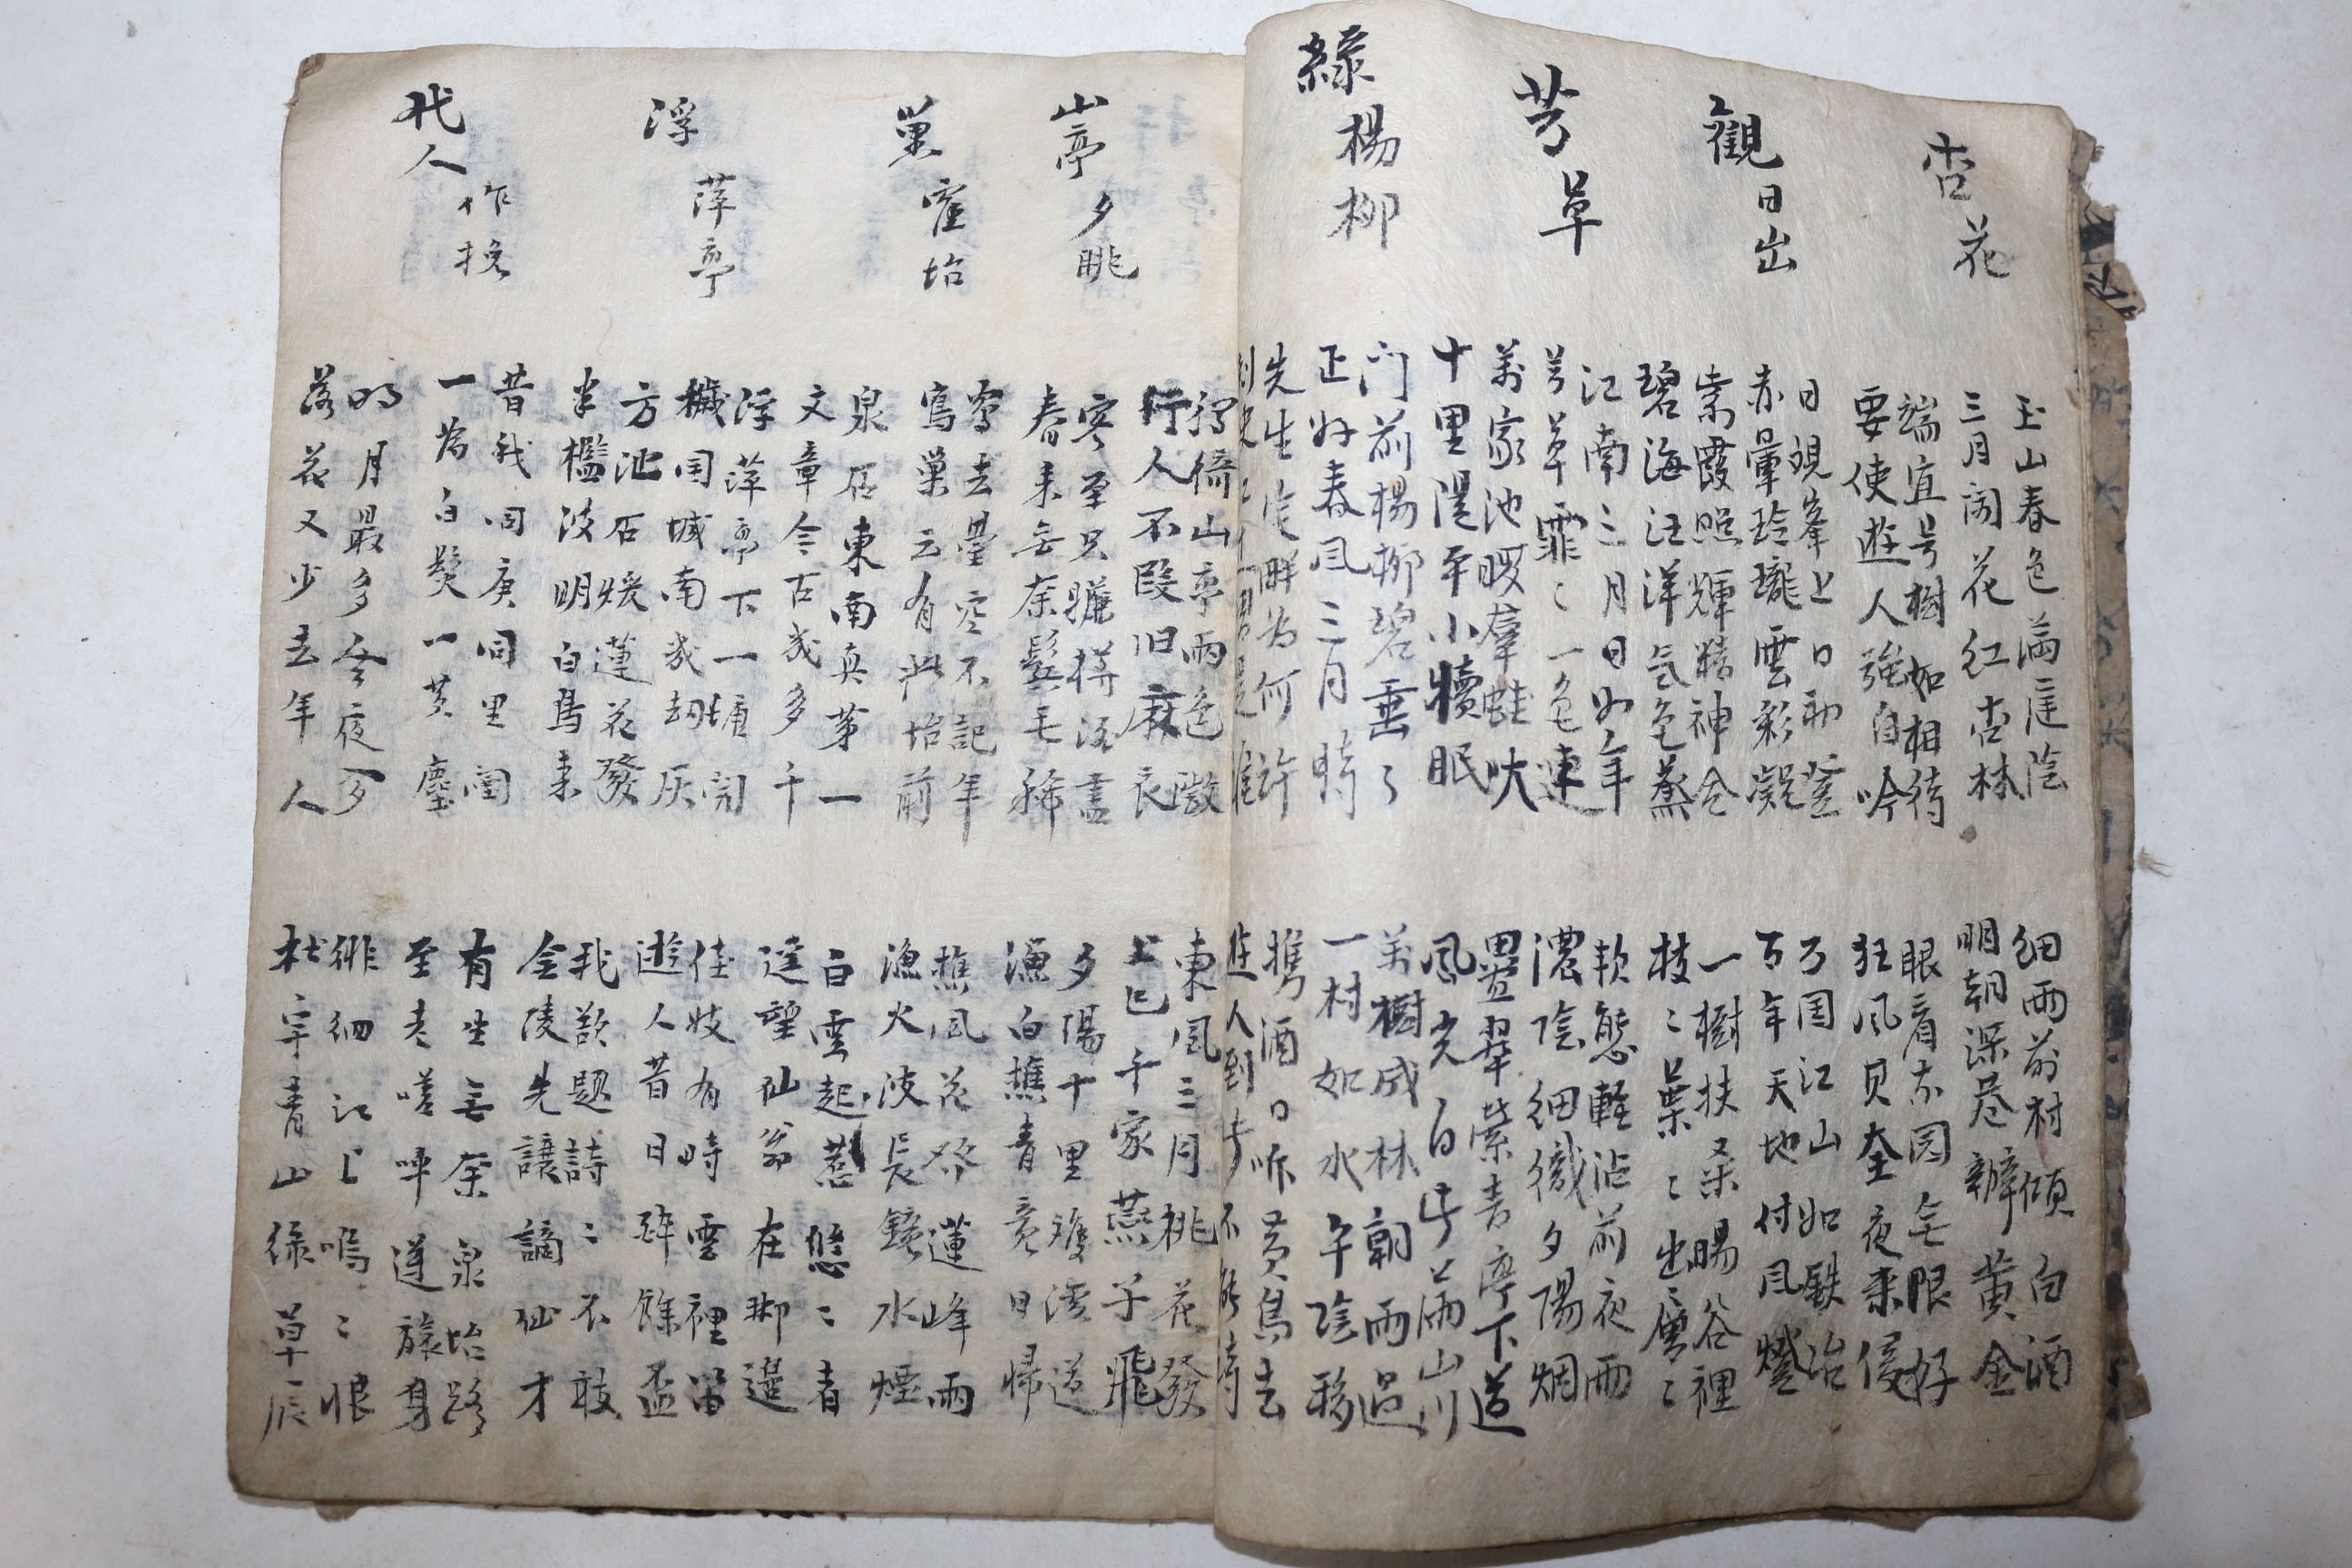 杏花
玉山春色滿庭陰
三月閑花紅杏林
端宜号樹如相待
要使遊人強自吟
細雨前村傾白酒
明朝深巷辦黃金
眼看東园無限好
狂風貝夜來侵
觀日出
日視峯上日初登
赤暈玲瓏雲彩凝
紫霞照輝精神全
碧海汪洋気色蒸
万国江山如鉄冶
百年天地付風燈
一樹扶桑暘谷裡
枝〻葉〻出層〻
芳草
江南三月日如年
芳草霏〻一色連
萬家池暖群蛙吠
十里堤平小犢眠
軟態輕沾前夜雨
濃陰細織夕陽烟
疊翠縈青亭下道
風光百步滿山川
綠楊柳
門前楊柳碧垂〻
正好春風三月時
先生陰畔為何許
萬樹成林朝雨過
一村如水午陰移
携酒日昨黃鳥去
遊人到步不能詩
山亭夕眺
獨倚山亭雨色微
行人不段旧麻衣
寒至只獵得酒盡
春来無奈鬂毛稀
東風三月桃花發
上巳千家燕子飛
夕陽十里雙溪道
漁白樵青竟日帰
巢雀坮
雀去臺空不記年
鳥巢云有此坮前
泉石東南真第一
文章今古幾多千
樵風花祭蓮峰雨
漁火波長鏡水煙
白雲起惹悠〻者
達望仙翁在那邊
浮萍亭
浮萍亭下一塘開
檻国城南幾劫灰
方池石煖蓮花發
半檻波明白鳥来
佳妓有時雲裡笛
遊人昔日酔餘盃
我欲題詩〻不敢
金陵先讓謫仙才
代人作挽
昔我同庚同里閭
一為白髮一黃塵
明月最多今夜夕
落花又少去年人
有生無奈泉坮路
至老嗟呼逆旅身
徘徊江上嗚〻恨
杜宇青山綠草辰